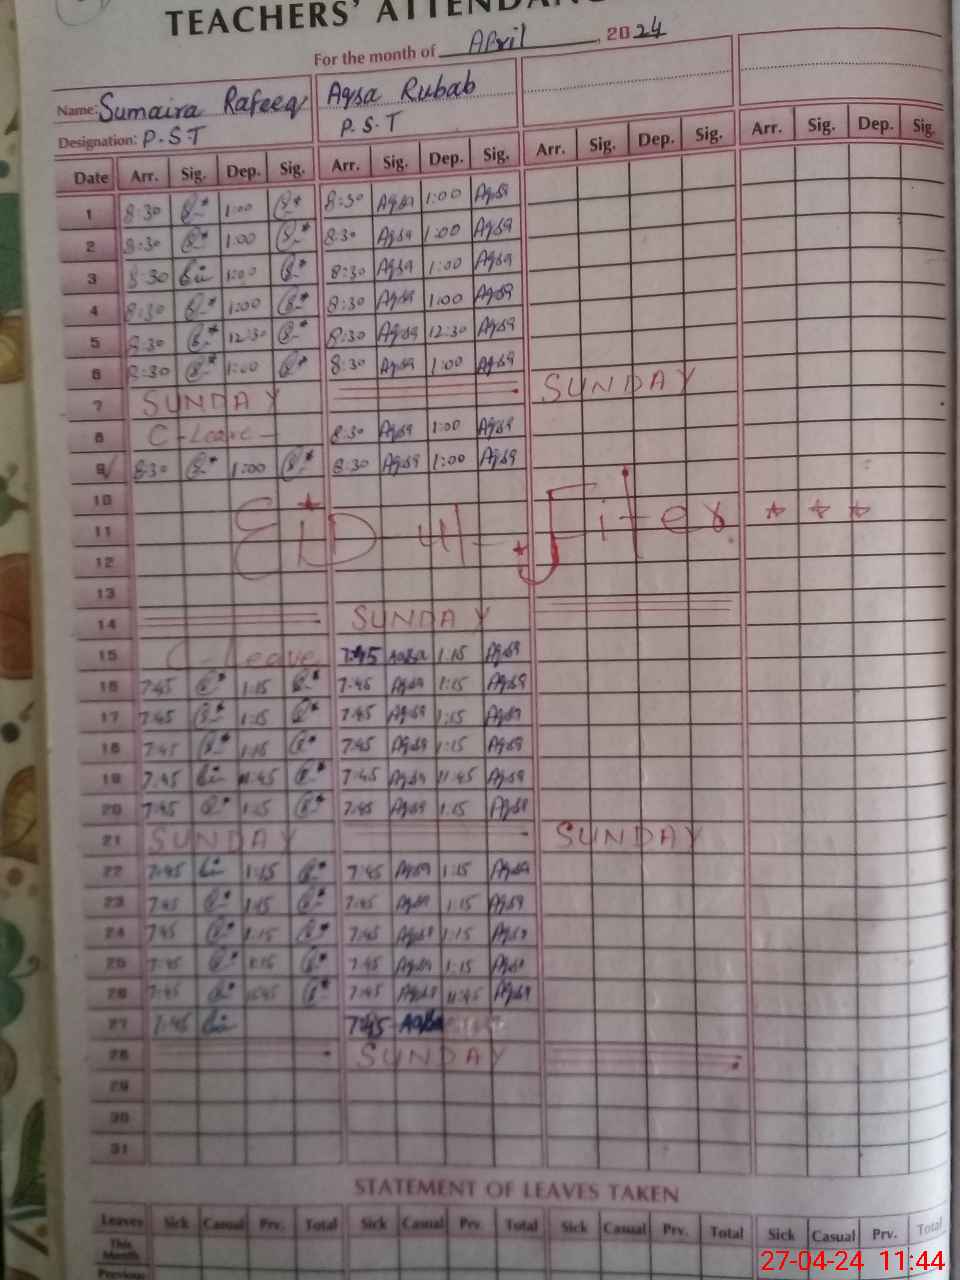 TEACHERS' ATTENDANC
For the month of April, 2024
Name: Sumaira Rafeeq Aqsa Rubab
Designation: P.S.T P.S.T
Date Arr. Sig. Dep. Sig. Arr. Sig. Dep. Sig. Arr. Sig. Dep. Sig. Arr. Sig. Dep. Sig.
1 8:30 1:00 8:30 Aqsa 1:00 Aqsa
2 8:30 1:00 8:30 Aqsa 1:00 Aqsa
3 8:30 1:00 8:30 Aqsa 1:00 Aqsa
4 8:30 1:00 8:30 Aqsa 1:00 Aqsa
5 8:30 12:30 8:30 Aqsa 12:30 Aqsa
6 8:30 1:00 8:30 Aqsa 1:00 Aqsa
7 SUNDAY SUNDAY
8 C-Leave 8:30 Aqsa 1:00 Aqsa
9 8:30 1:00 8:30 Aqsa 1:00 Aqsa
10
11 EID-ul-Fiter
12
13
14 SUNDAY
15 C-Leave 7:45 Aqsa 1:15 Aqsa
16 7:45 1:15 7:45 Aqsa 1:15 Aqsa
17 7:45 1:15 7:45 Aqsa 1:15 Aqsa
18 7:45 1:15 7:45 Aqsa 1:15 Aqsa
19 7:45 11:45 7:45 Aqsa 11:45 Aqsa
20 7:45 1:15 7:45 Aqsa 1:15 Aqsa
21 SUNDAY SUNDAY
22 7:45 1:15 7:45 Aqsa 1:15 Aqsa
23 7:45 1:15 7:45 Aqsa 1:15 Aqsa
24 7:45 1:15 7:45 Aqsa 1:15 Aqsa
25 7:45 1:15 7:45 Aqsa 1:15 Aqsa
26 7:45 11:45 7:45 Aqsa 11:45 Aqsa
27 7:45 7:45 Aqsa
28 SUNDAY
29
30
31
STATEMENT OF LEAVES TAKEN
Leaves Sick Casual Prv. Total Sick Casual Prv. Total Sick Casual Prv. Total Sick Casual Prv. Total
This Month
Previous
27-04-24 11:44